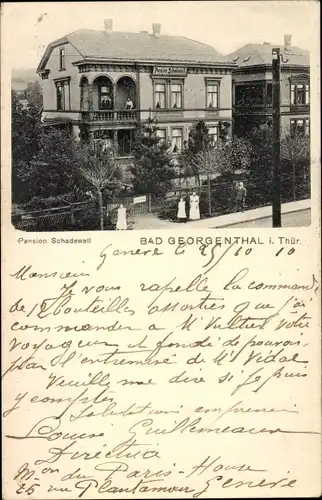 Pension Schadewell
BAD GEORGENTHAL i. Thür.
Genève le 25/10 10
Monsieur
Je vous rapelle la commande
de 12 bouteilles assorties que j'ai
commander a Mr Vullien votre
voyageur et fondé de pouvoir
par l'entremise de Mr Vidal
Veuille me dire si je puis
y compter
Salutations empressées
Louise Guillemeaux
Directrice
Mon du Paris-House
25 rue Plantamour Genève